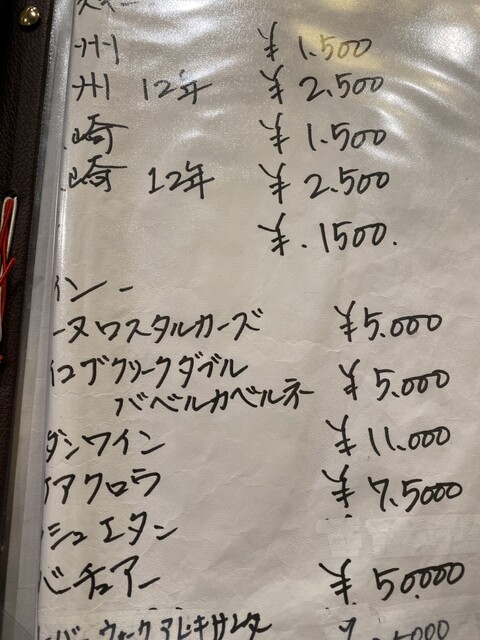 州 ¥1.500
州 12年 ¥2.500
崎 ¥1.500
崎 12年 ¥2.500
¥.1500.
イン—
ーヌロスタルカーズ ¥5.000
イコブクリークダブル
バベルカベルネー ¥5.000
ダンワイン ¥11.000
イアクロウ ¥7.5000
シュエタン
バチュアー ¥50.000